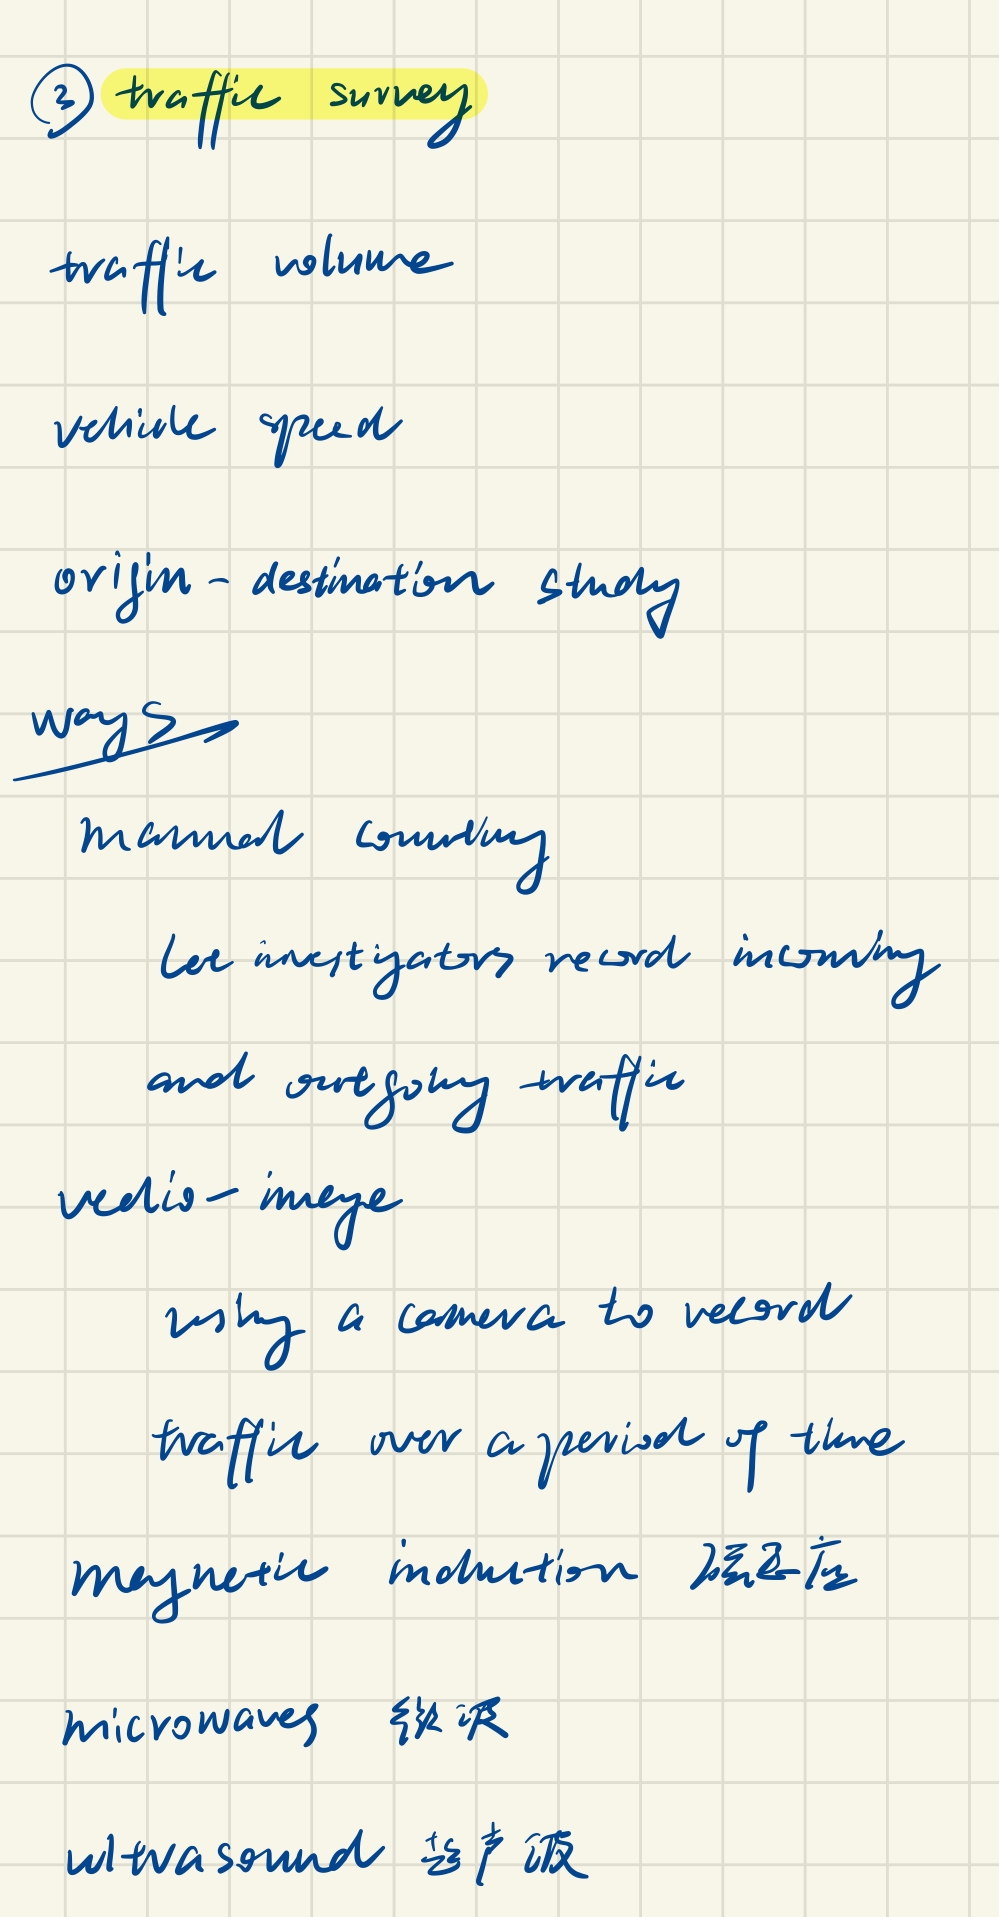 ③ traffic survey
traffic volume
vehicle speed
origin - destination study
ways
manned counting
Let investigators record incoming
and outgoing traffic
vedio - image
using a camera to record
traffic over a period of time
magnetic induction 磁感应
microwaves 微波
ultrasound 超声波